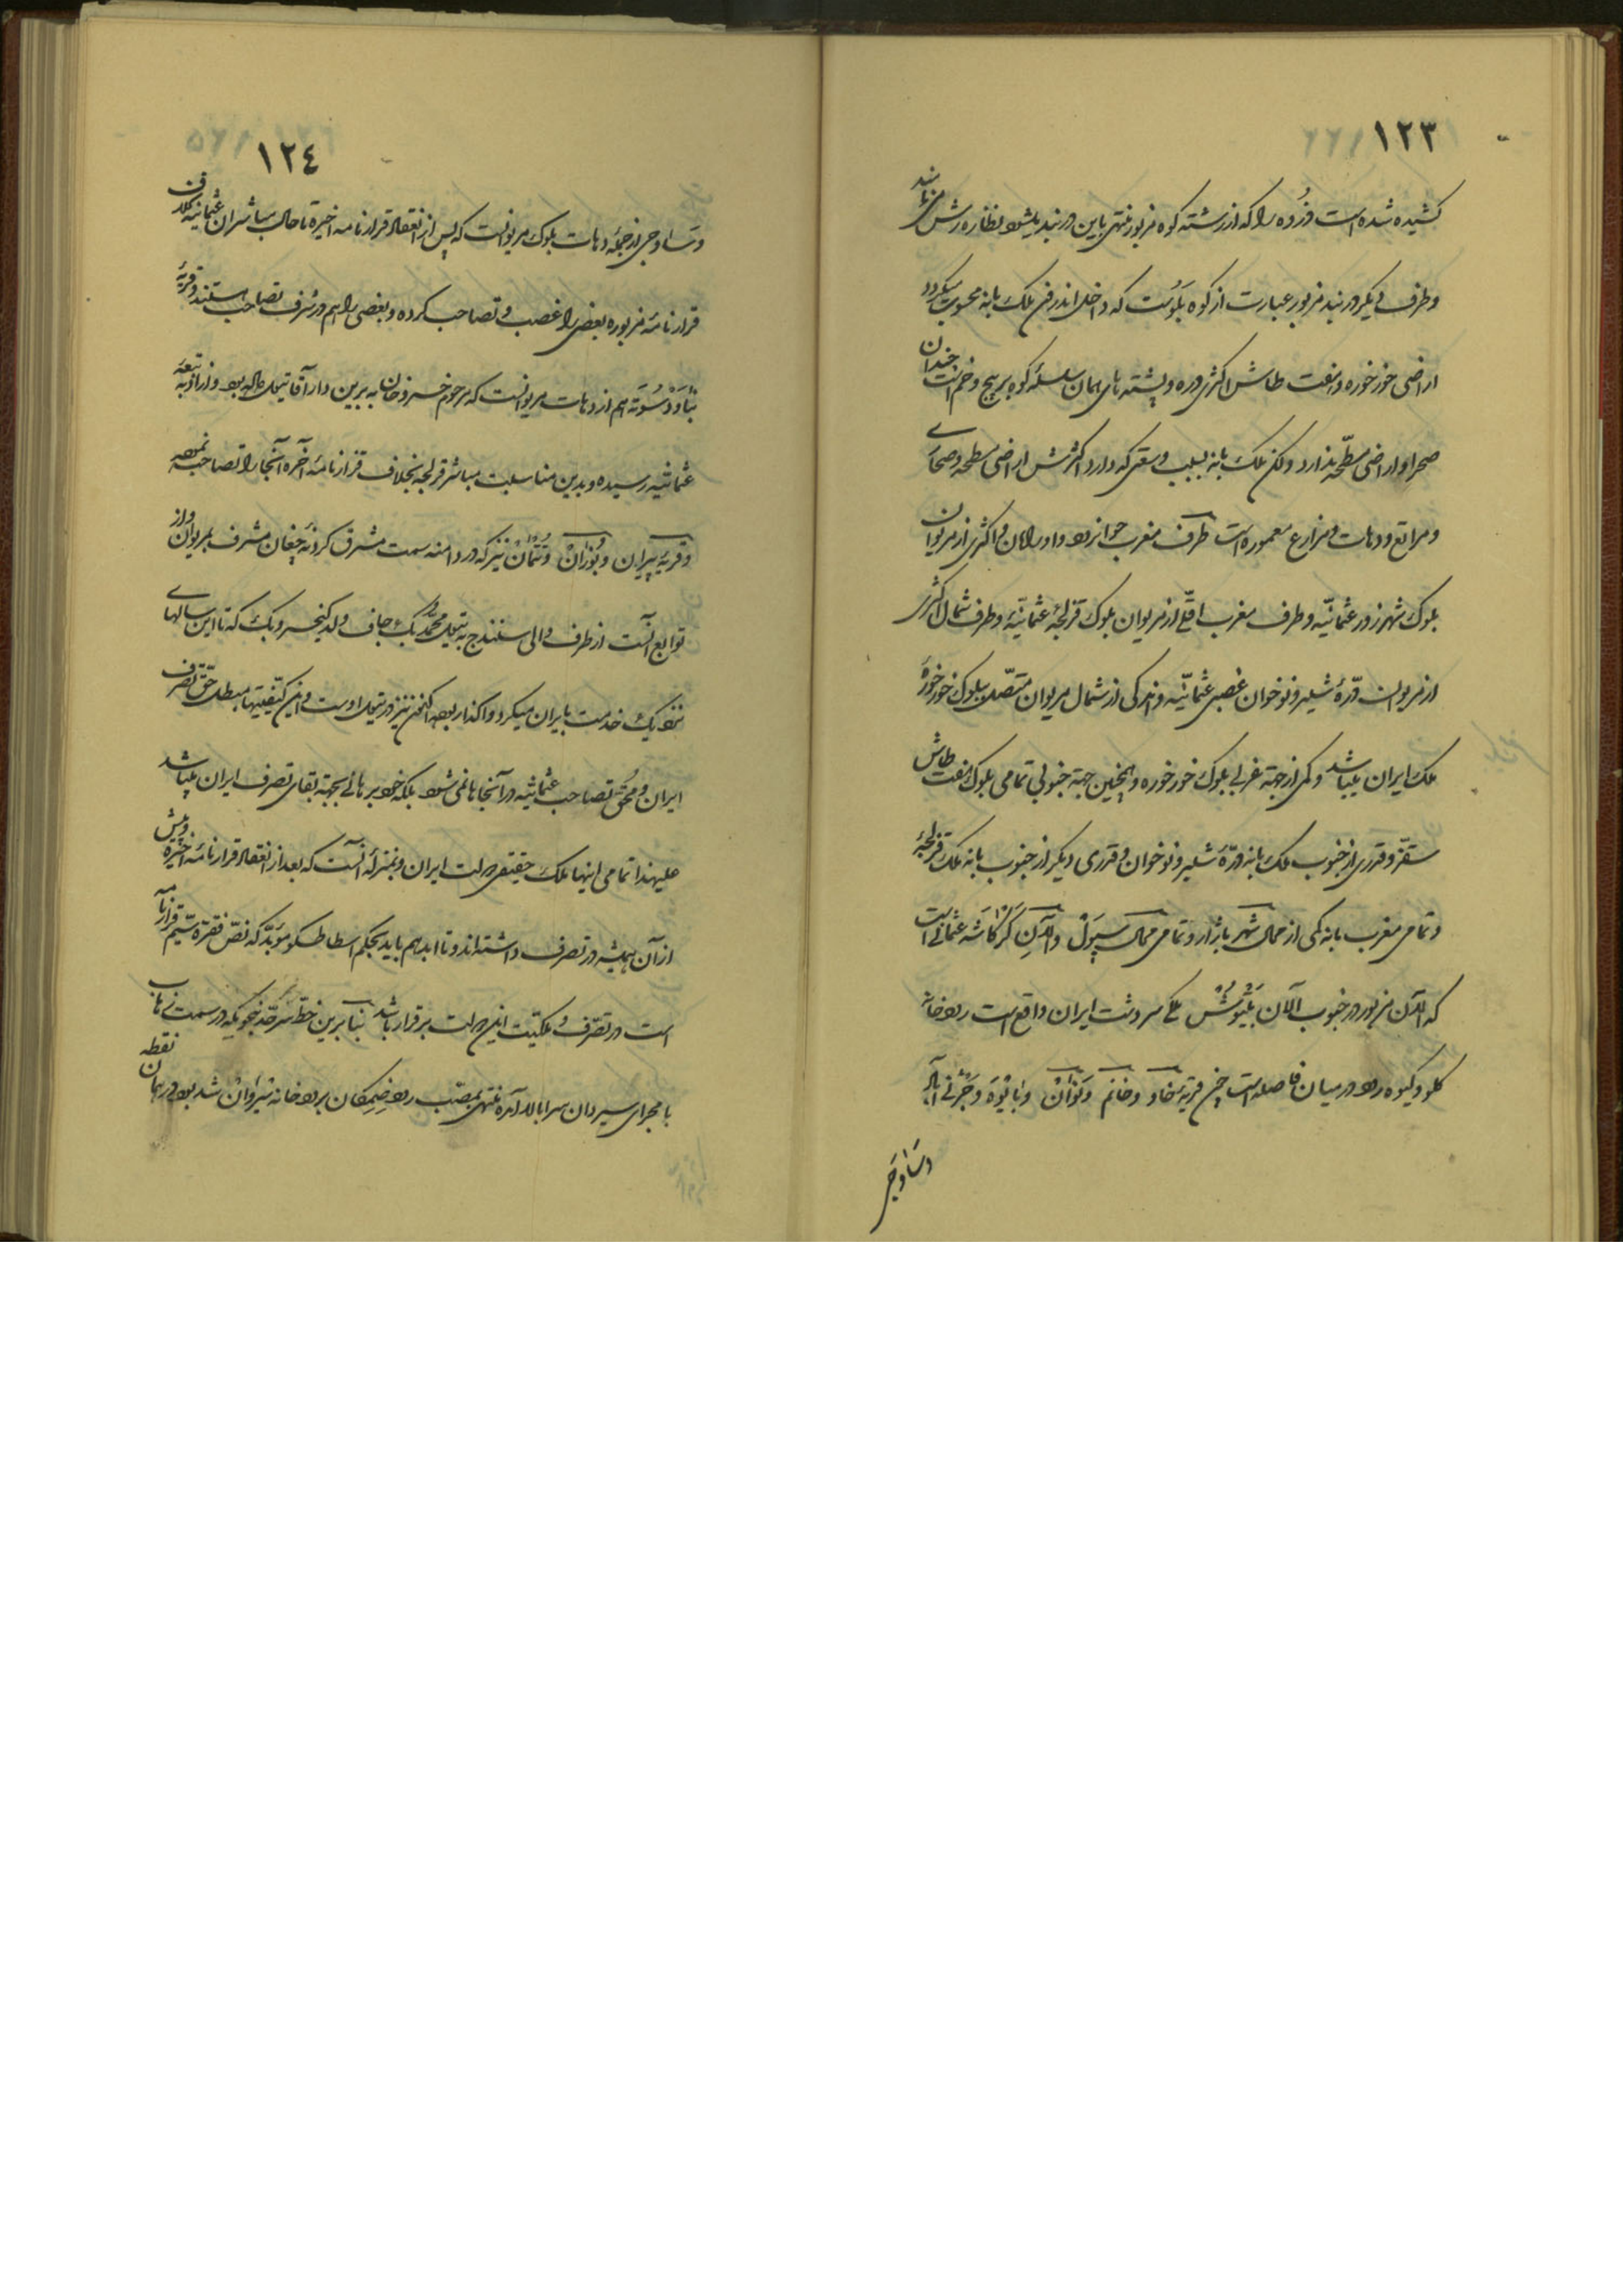 ١٢٣
کشیده شده است و زُوده را که از رشته کوه مزبور منتهی باین دربند میشود نظاره رش مینامند
و طرف دیکر دربند مزبور عبارت از کوه بَلُوُست که داخل اندرون ملک بانه محسوب میکردد
اراضی خورخوره و هفت طاش اکثری دره و پشته های همان سلسلهٔ کوه پرپیچ و خم است چندان
صحرا و اراضی مسطحه ندارد ولکن ملک بانه بسبب وسعتی که دارد اکثرش اراضی مسطحه و صحاری
و مراتع و دهات و مزارع معموره است طرف مغرب جوانرود و اورامان و اکثری از مریوان
بلوک شهرزور عثمانیّه و طرف مغرب اقلّی از مریوان بلوک قزلجهٔ عثمانیّه و طرف شمال اکثری
از مریوان درّهٔ شلیر و نوخوان غصبی عثمانیّه و اندکی از شمال مریوان متّصل ببلوک خورخورهٔ
ملک ایران میباشد و کمی از جهة غربی بلوک خورخوره و همچنین جهة جنوبی تمامی بلوک هفت طاش
سقّز و قدری از جنوب ملک بانه درّهٔ شلیر و نوخوان و قدری دیکر از جنوب بانه ملک قزلجهٔ
و تمامی مغرب بانه کمی از محال شهر بازار و تمامی محال سیوَل و آلانِ کَرکاشَهٔ عثمانی است
که آلان مزبور در جنوب آلان سردشت ایران واقع است رودخانه
کلو و کیوه رود در میان فاصله است خن قریهٔ خاو و خانَم و نَوْرانْ و بایْوَه و
و ساوجی
١٢٤
و ساوجی از جملهٔ دهات بلوک مریوانست که پس از انعقاد قرارنامه اخیرة تا حال مباشران عثمانیّه خلاف
قرارنامهٔ مزبوره بعضی را غصب و تصاحب کرده و بعضی را هم در شرف تصاحب هستند و قریهٔ
هم از دهات مریوانست که مرحوم خسروخان به داراقا تیول داده بود و از او به تبعهٔ
عثمانیّه رسیده و بدین مناسبت مباشر قزلجه بخلاف قرارنامهٔ آخره آنجا را تصاحب نموده
و قریهٔ پیران و بُوزانْ و نیز که در دامنه سمت مشرق کردنهٔ چغان مشرف بمریوان و از
توابع آنست از طرف والی سنندج به تیول محمّد بک جاف ولد کیخسرو بک که تا این سالهای
نزدیک خدمت بایران میکرد واکذار بود اکنون نیز در تیول اوست و این کیفیّتها مبطل حقّ تصرّف
ایران و محقّ تصاحب عثمانیّه در آنجاها نمی شود بلکه خود برهانی بجهة بقای تصرف ایران میباشد
علیهذا تمامی اینها ملک حقیقی دولت ایران و بمنزلهٔ آنست که بعد از انعقاد قرارنامهٔ اخیره و پیش
از آن همیشه در تصرف داشته اند و تا ابد هم باید بحکم اسطاطسکو مؤبّد که نصّ فقرهٔ سیّم قرارنامه
است در تصرّف و ملکیّت این دولت برقرار باشد بنابرین خطّ سرحدّ بنحویکه در سمت ذهاب
با مجرای سیروان سرابالا آمده منتهی بمصب رود ضِمِکان برودخانه شیروان شده بود در همان نقطه